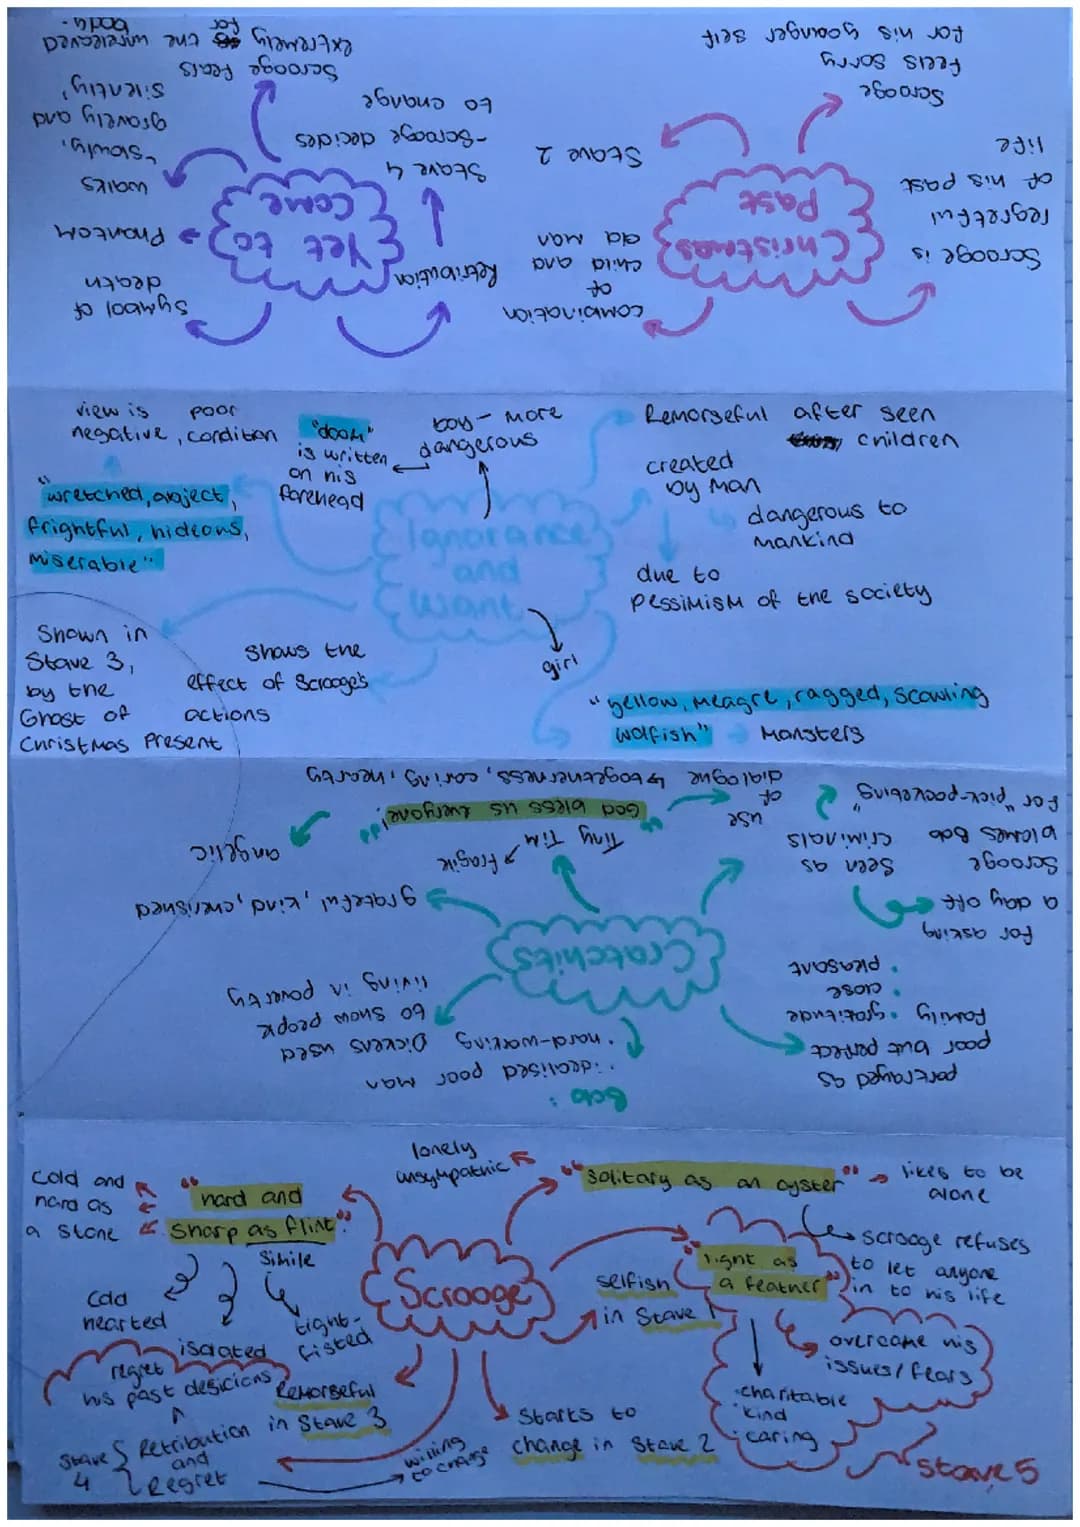 Christmas
Past
Scrooge is
regretful
of his past
life
Scrooge
feels sorry
for his younger self
Stave 2
combination
of
child and
old man
Yet to
come
Retribution
Stave 4
- Scrooge decides
to change
Symbol of
death
Phantom
walks
"slowly,
gravely and
silently"
Scrooge feels
extremely
for the unreleaved
body.
Ignorance
and
Want
view is
negative,
poor
condition
"doom"
is written
on his
forehead
boy - more
dangerous
Remorseful after seen
children
created
by man
dangerous to
mankind
due to
pessimism of the society
"wretched, abject,
frightful, hideous,
miserable"
Shown in
Stave 3,
by the
Ghost of
Christmas Present
shows the
effect of Scrooge's
actions
girl
"yellow, meagre, ragged, scowling
wolfish"
Monsters
Cratchits
Bob:
· idealised poor man
· hard-working
Dickens used
to show people
living in poverty
portrayed as
poor but perfect
family
· gratitude
· close
· pleasant
grateful, kind, cherished
Tiny Tim
fragile
angelic
"God bless us everyone!"
use
of
dialogue
togetherness, caring, hearty
seen as
criminals
Scrooge
blames Bob
for "pick-pocketing"
for asking
a day off
Scrooge
lonely
unsympathic
"solitary as an oyster"
likes to be
alone
Scrooge refuses
to let anyone
in to his life
Cold and
hard as
a stone
"hard and
sharp as flint"
Simile
Cold
hearted
isolated
tight-
fisted
selfish
in Stave 1
"light as
a feather"
overcame his
issues/fears
·charitable
·kind
·caring
Stave 5
regret
his past desicions
Remorseful
in Stave 3
Stave
4
Retribution
and
regret
willing
to change
Starts to
change in Stave 2